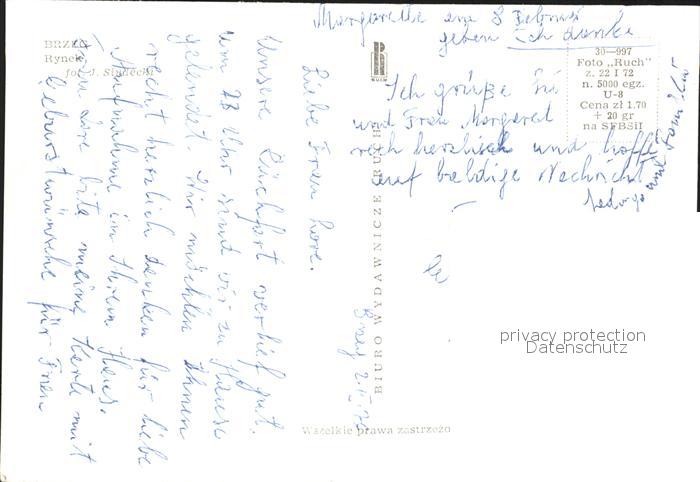 BRZEG
Rynek
fot. J. Siudecki
Liebe Frau Lore.
Unsere Rückfart verlief gut.
um 23 Uhr sind wir zu Hause
gelendet. Wir möchten Ihnen
recht herzlich danken für liebe
Aufnahme im Ihrem Haus.
Frau Lore bite meine Karte mit
Geburstwünsche für Frau
Margarette am 8 Februar
geben Ich danke
Ich grüße Sie
und Frau Margaret
rech herzlich und hoffe
auf baldige Nachricht
und Familie
Brzeg 2.II.76
RUCH
BIURO WYDAWNICZE RUCH
30—997
Foto „Ruch"
z. 22 I 72
n. 5000 egz.
U-8
Cena zł 1.70
+ 20 gr
na SFBSiI
privacy protection
Datenschutz
Wszelkie prawa zastrzeżo